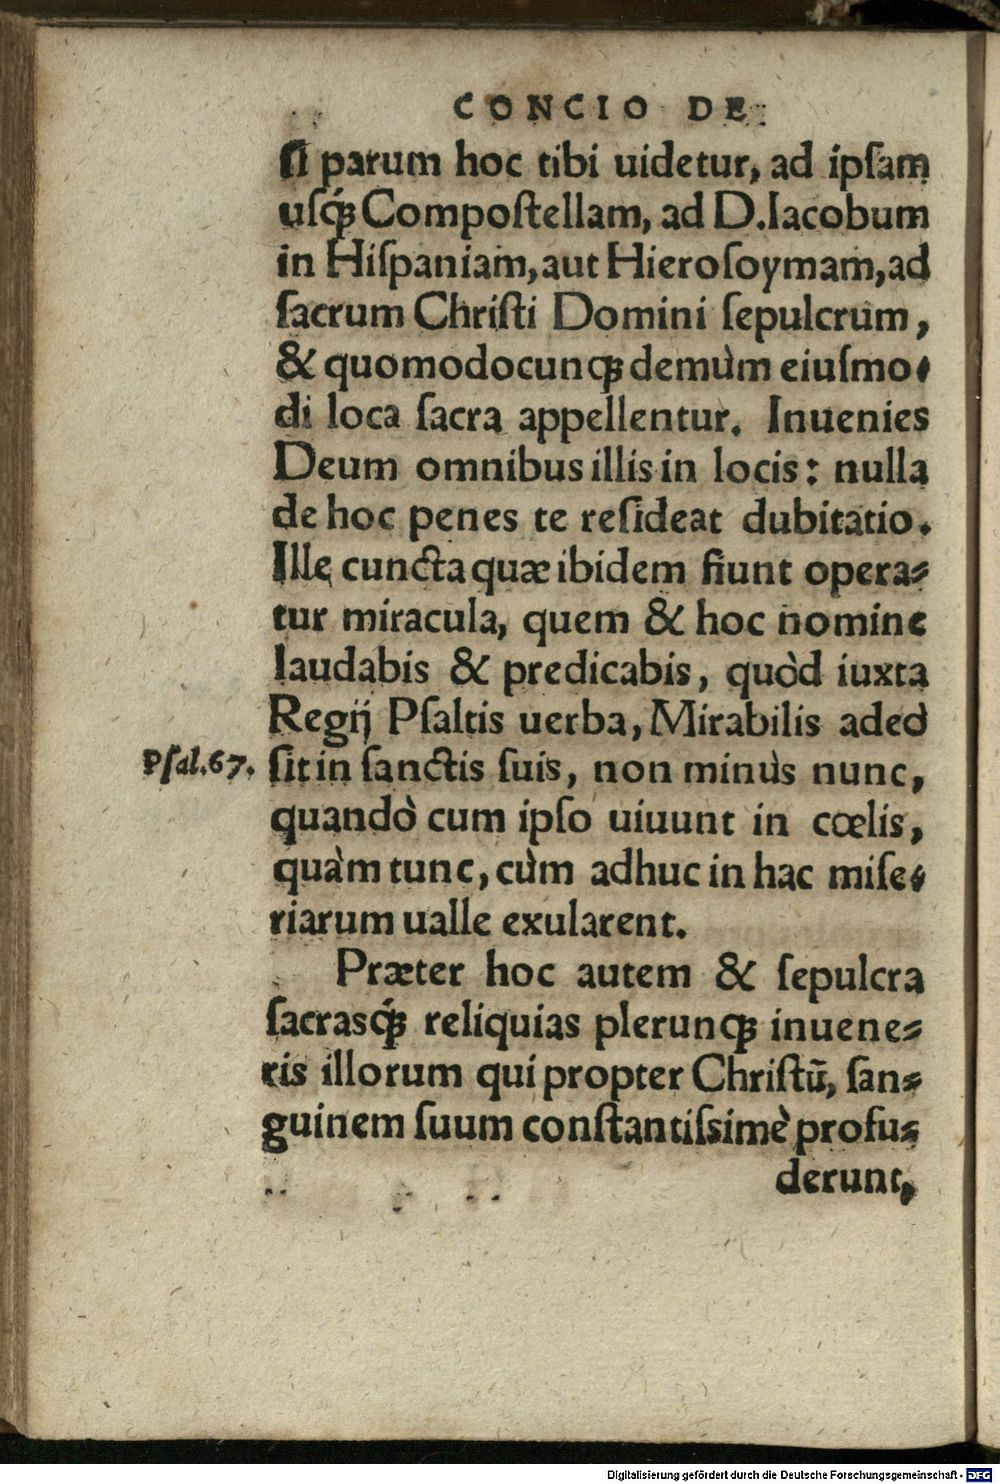 CONCIO DE
ſi parum hoc tibi uidetur, ad ipſam
uſq́ꝫ Compoſtellam, ad D. Iacobum
in Hiſpaniam, aut Hieroſoymam, ad
ſacrum Chriſti Domini ſepulcrum,
& quomodocunqꝫ demùm eiuſmo⸗
di loca ſacra appellentur. Inuenies
Deum omnibus illis in locis: nulla
de hoc penes te reſideat dubitatio.
Ille cuncta quæ ibidem fiunt opera⸗
tur miracula, quem & hoc nomine
laudabis & predicabis, quòd iuxta
Regij Pſaltis uerba, Mirabilis adeò
Pſal. 67. ſit in ſanctis ſuis, non minùs nunc,
quandò cum ipſo uiuunt in cœlis,
quàm tunc, cùm adhuc in hac miſe⸗
riarum ualle exularent.
Præter hoc autem & ſepulcra
ſacrasq́ꝫ reliquias plerunqꝫ inuene⸗
ris illorum qui propter Chriſtū, ſan⸗
guinem ſuum conſtantiſsimè profu⸗
derunt,
Digitalisierung gefördert durch die Deutsche Forschungsgemeinschaft - DFG